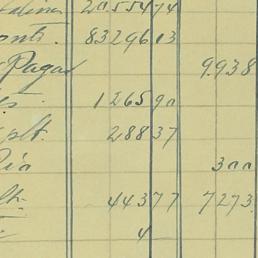 2055474
onts. 8329613
Pagar 9.938
es 126590
plt. 28837
Rio 300
lt. 44377 7273
4